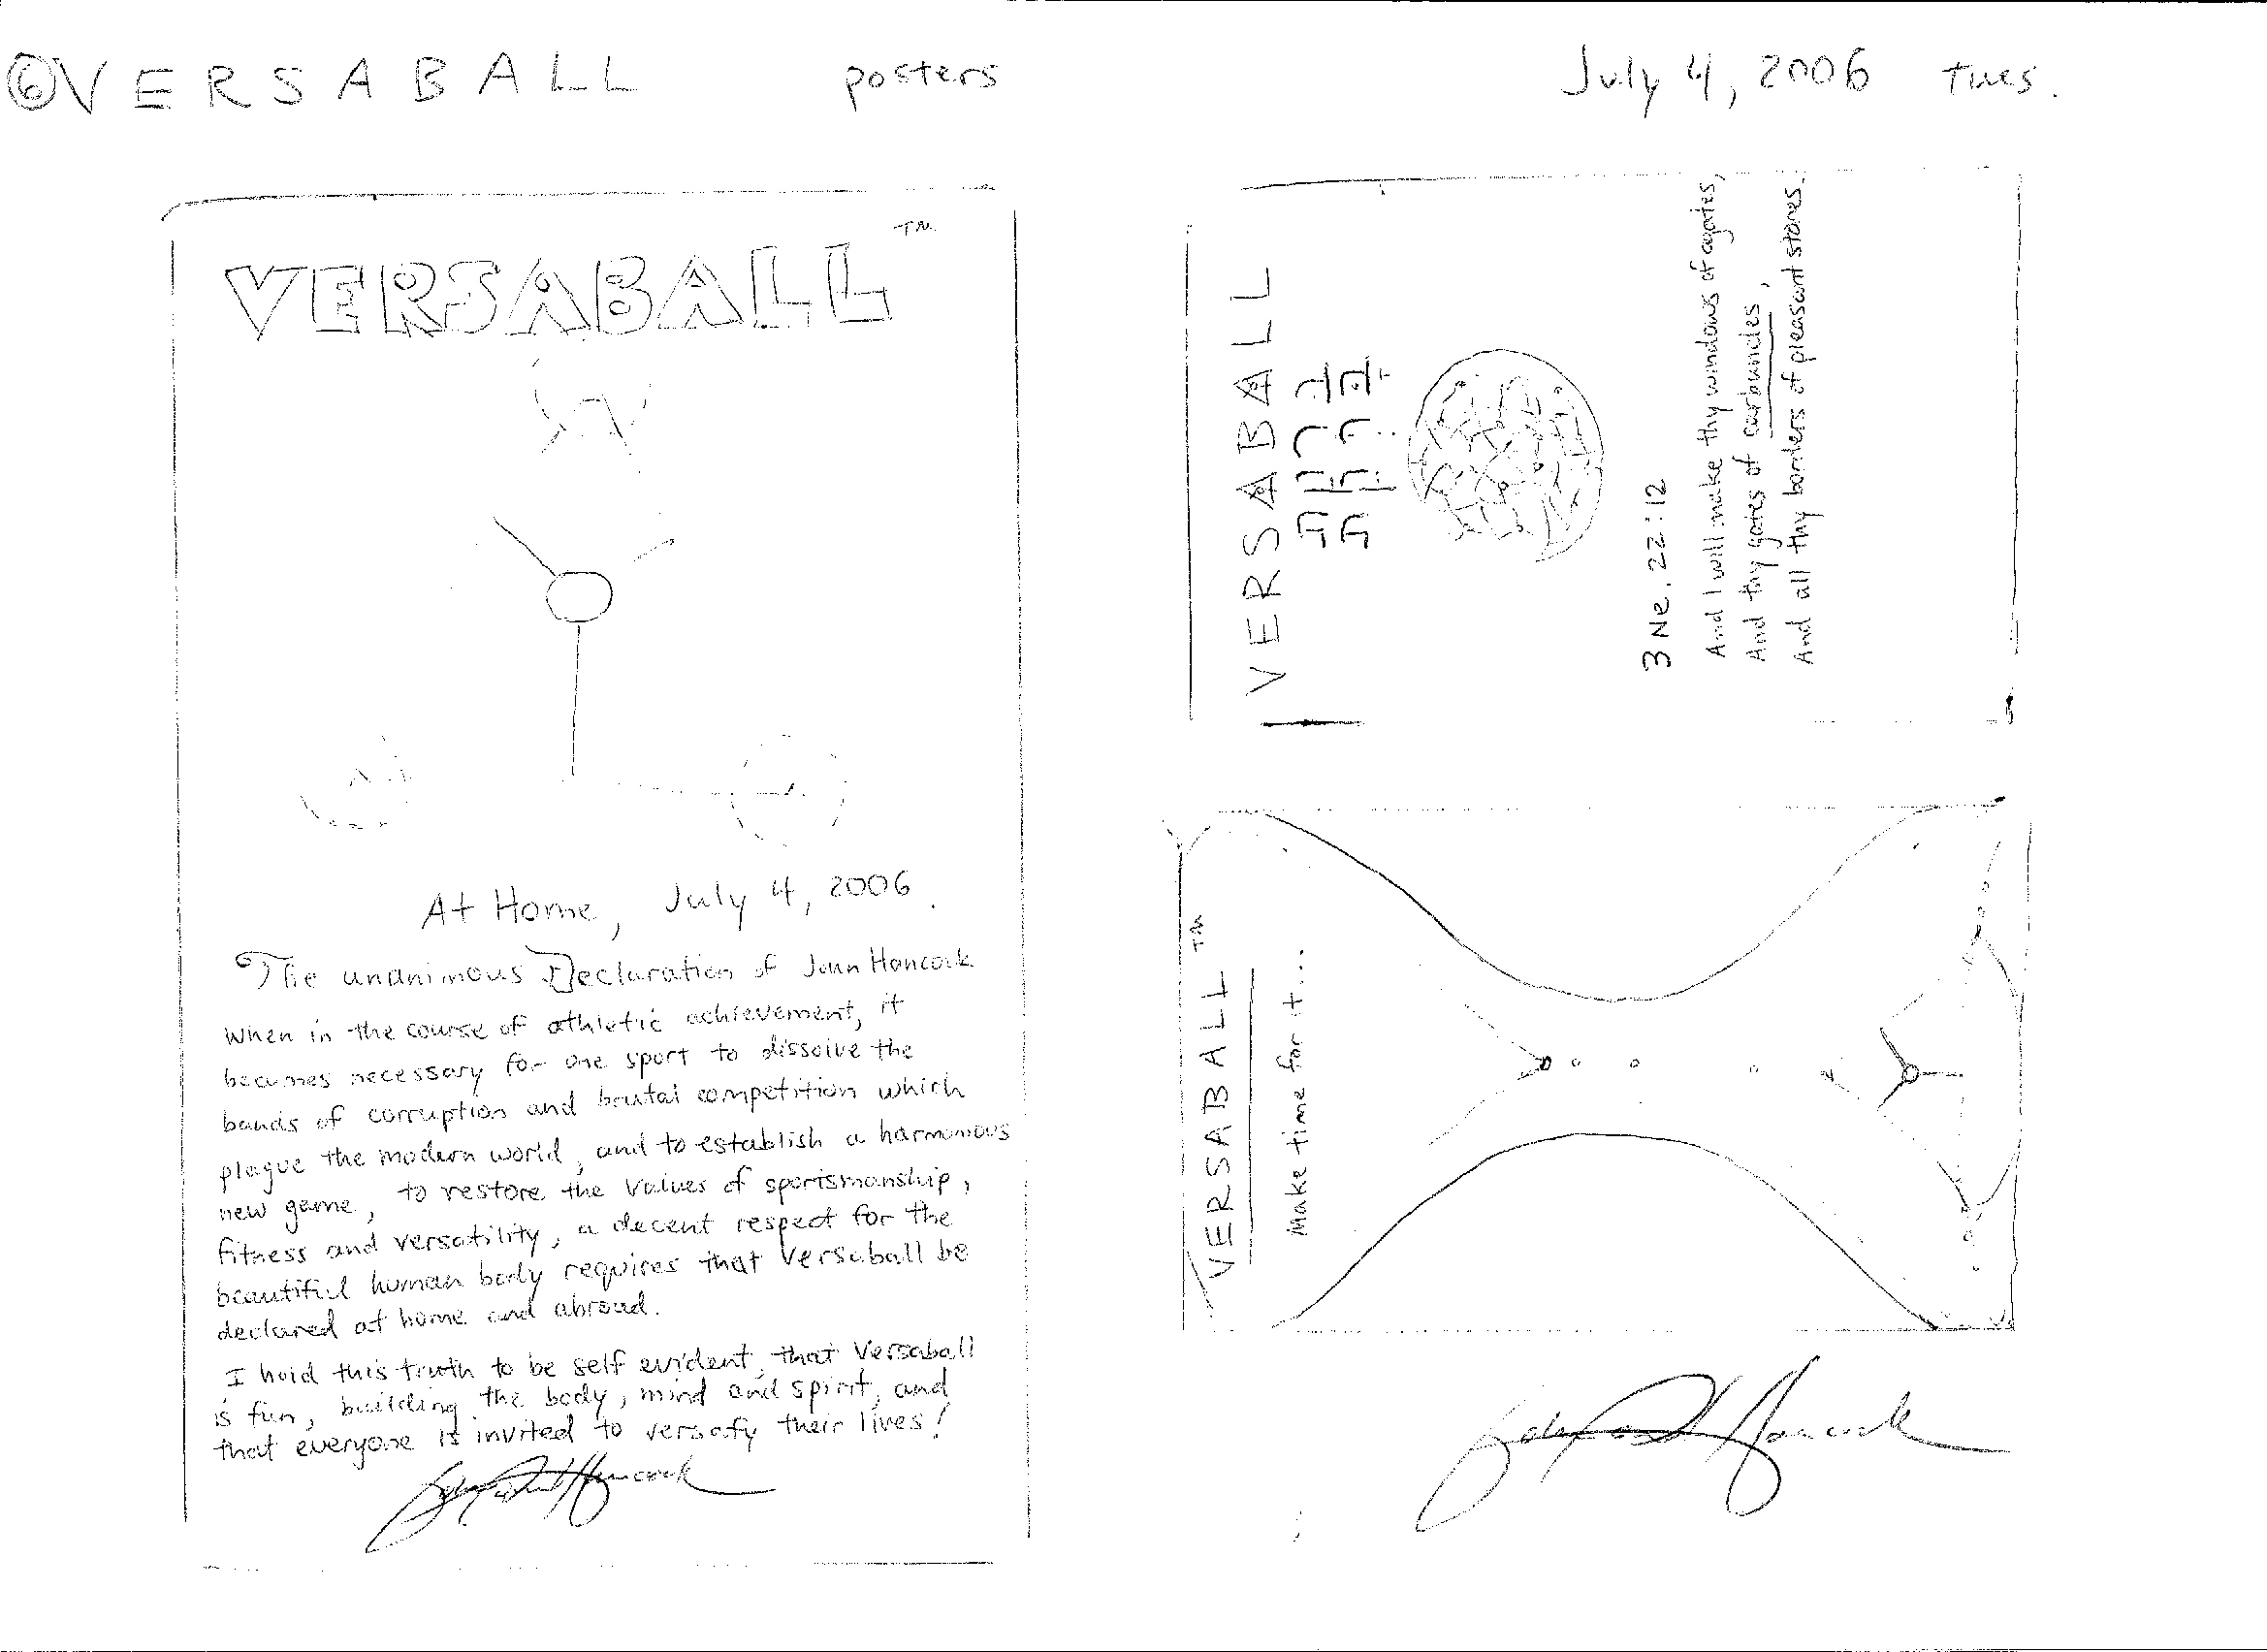 ⑥ VERSABALL posters July 4, 2006 Tues.
VERSABALL TM
At Home, July 4, 2006.
The unanimous Declaration of John Hancock
When in the course of athletic achievement, it
becomes necessary for one sport to dissolve the
bands of corruption and brutal competition which
plague the modern world, and to establish a harmonious
new game, to restore the values of sportsmanship,
fitness and versatility, a decent respect for the
beautiful human body requires that Versaball be
declared at home and abroad.
I hold this truth to be self evident, that Versaball
is fun, building the body, mind and spirit, and
that everyone is invited to versafy their lives!
VERSABALL
3 Ne. 22:12
And I will make thy windows of agates,
And thy gates of carbuncles,
And all thy borders of pleasant stones.
VERSABALL TM
Make time for it...
Hancock